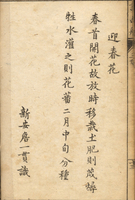 迎春花
春首開花故放時移栽土肥則茂焊
牲水灌之則花蕃二月中旬分種
新安居一貫識